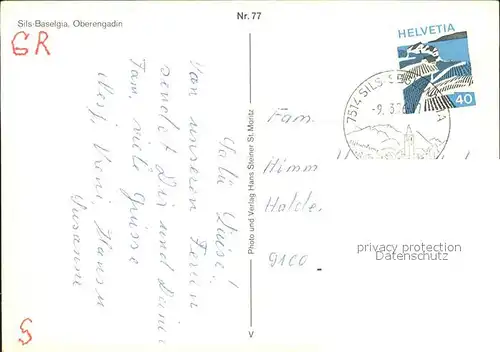 Sils-Baselgia, Oberengadin
Nr. 77
GR
HELVETIA
40
7514 SILS
-9. 3.76
Salü Luise!
Von unseren Ferien
sendet Dir und Deiner
Fam. viele Grüsse
Vreni, Hansru
Susanne
Photo und Verlag Hans Steiner St. Moritz
V
Fam.
Himm
Halde
9100
privacy protection
Datenschutz
S